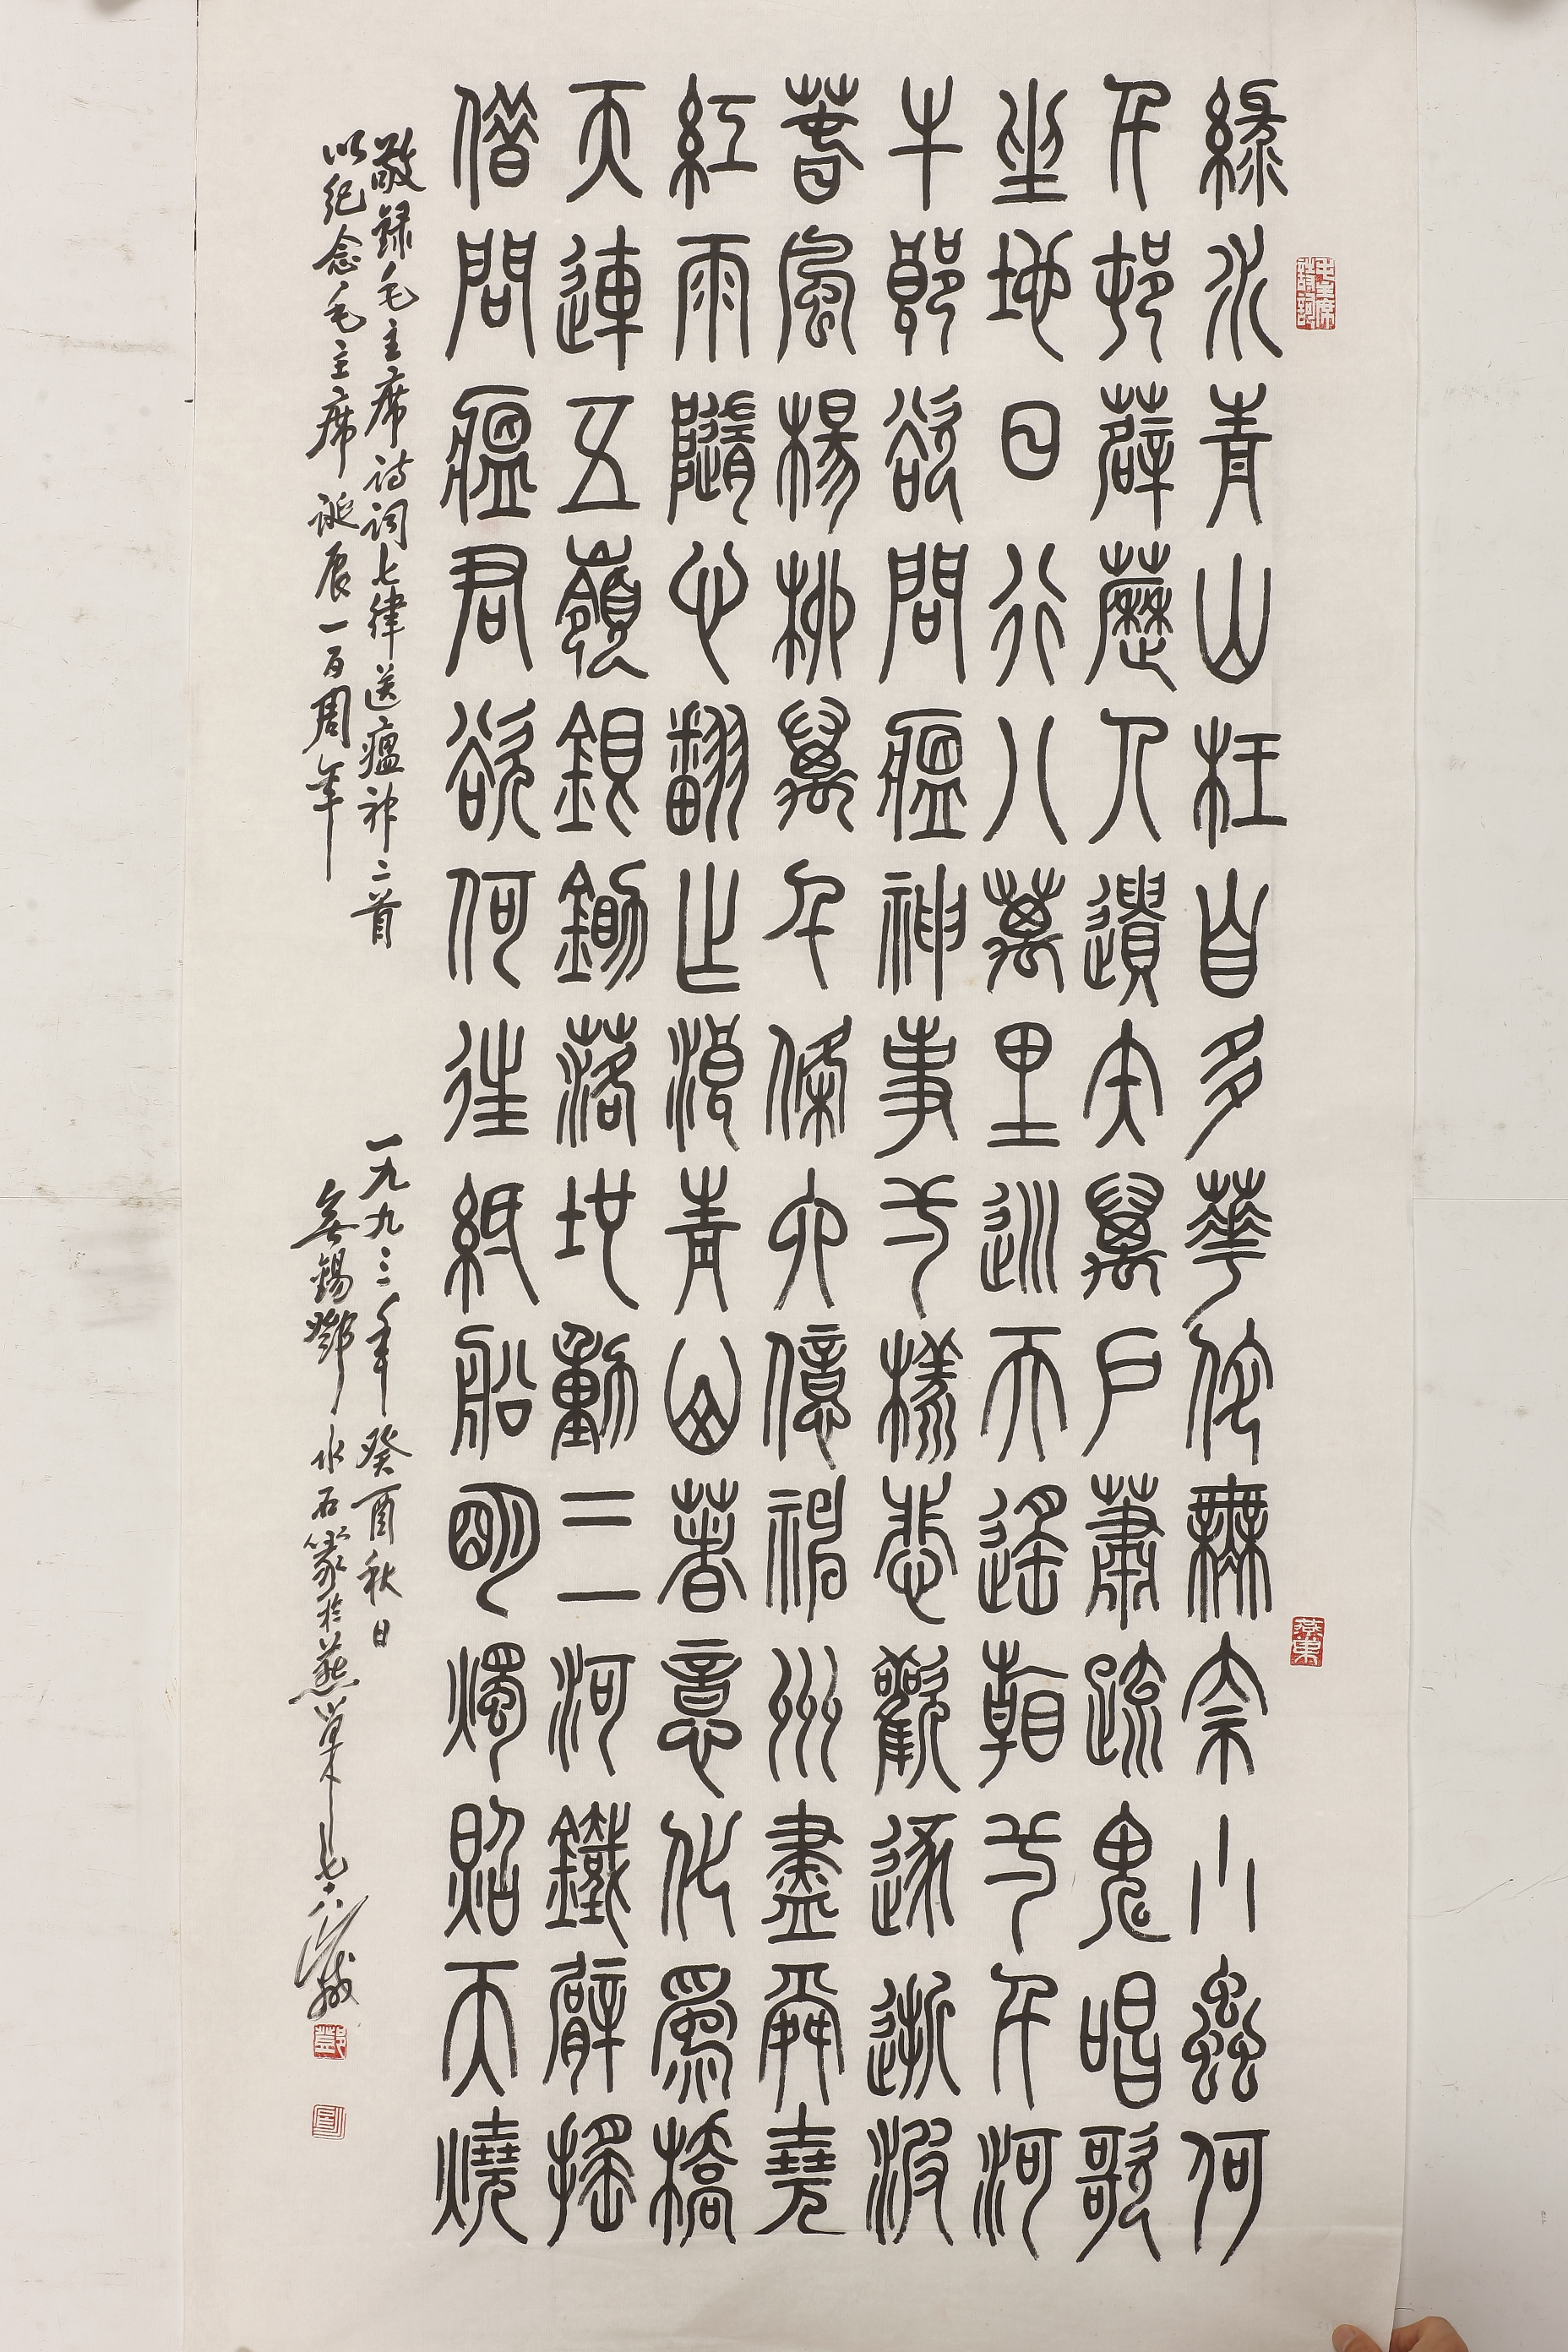 毛主席詩詞
綠水青山枉自多華佗無奈小蟲何
千村薜藶人遺矢萬戶蕭疏鬼唱歌
坐地日行八萬里巡天遙看一千河
牛郎欲問瘟神事一樣悲歡逐逝波
春風楊柳萬千條六億神州盡舜堯
紅雨隨心翻作浪青山著意化為橋
天連五嶺銀鋤落地動三河鐵臂搖
借問瘟君欲何往紙船明燭照天燒
敬録毛主席诗词七律送瘟神二首 一九九三年癸酉秋日
以纪念毛主席诞辰一百周年 無錫鄧水石篆於燕巢